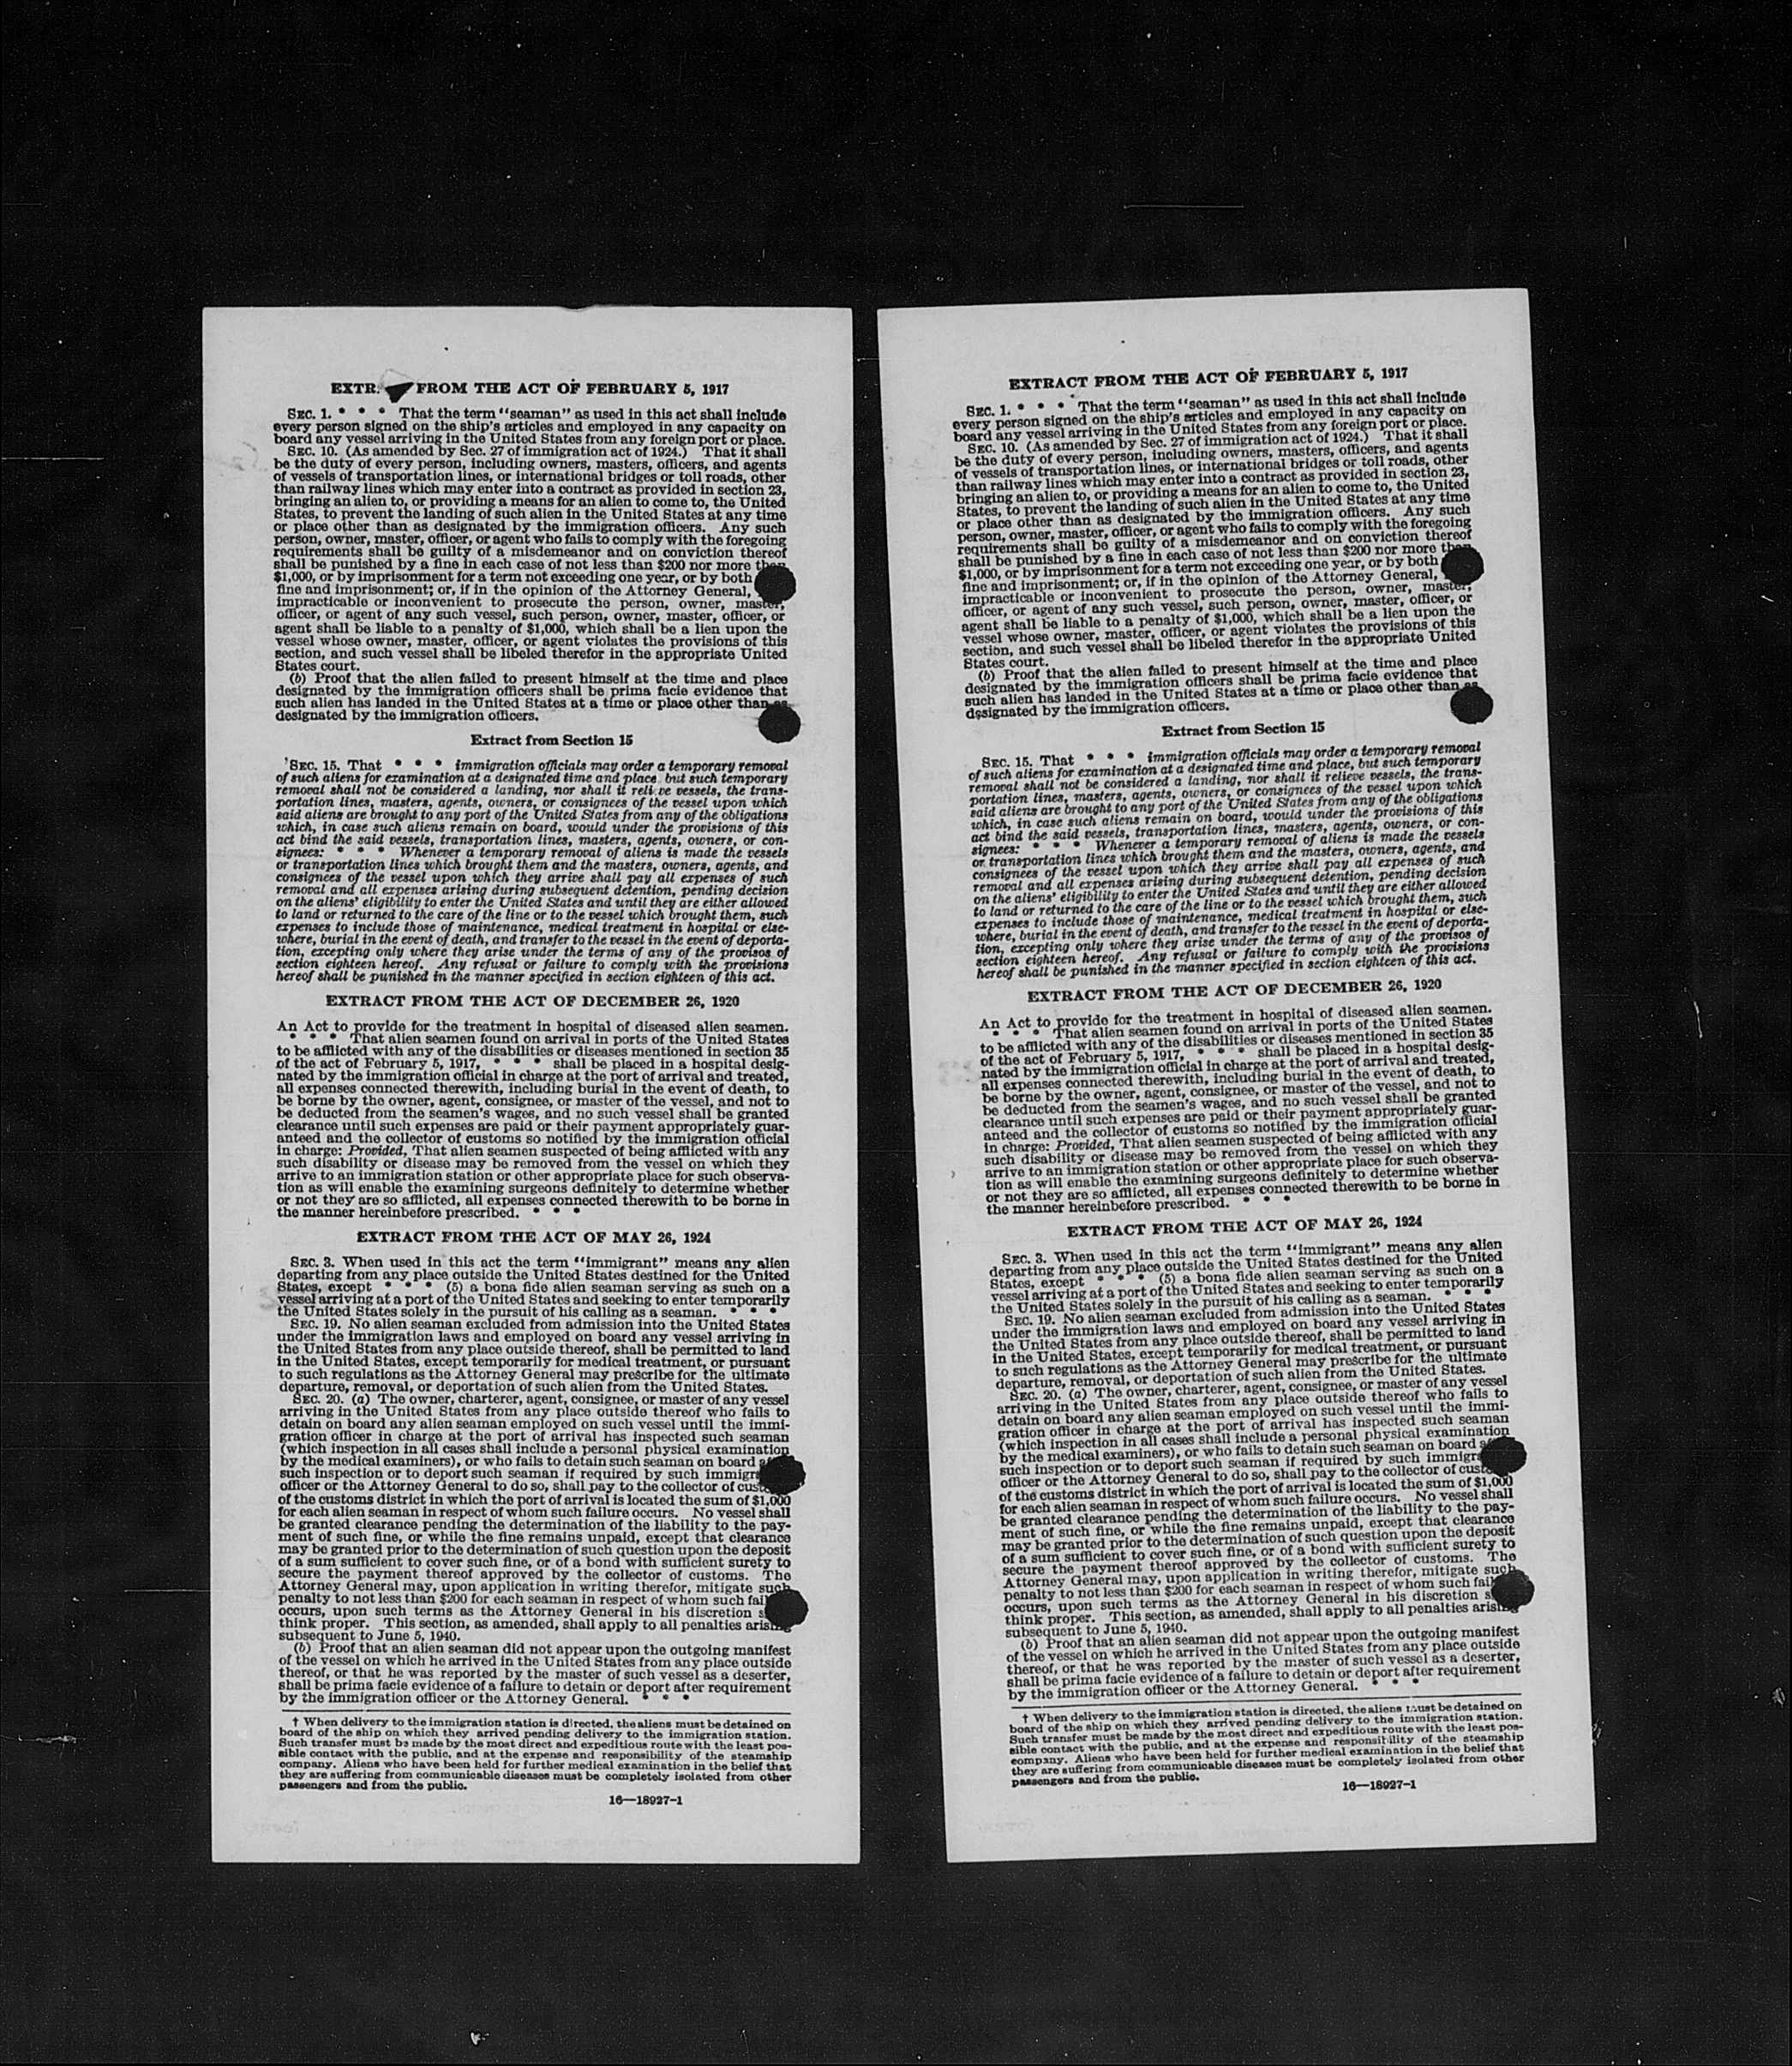 EXTR. FROM THE ACT OF FEBRUARY 5, 1917
SEC. 1. * * * That the term "seaman" as used in this act shall include
every person signed on the ship's articles and employed in any capacity on
board any vessel arriving in the United States from any foreign port or place.
SEC. 10. (As amended by Sec. 27 of immigration act of 1924.) That it shall
be the duty of every person, including owners, masters, officers, and agents
of vessels of transportation lines, or international bridges or toll roads, other
than railway lines which may enter into a contract as provided in section 23,
bringing an alien to, or providing a means for an alien to come to, the United
States, to prevent the landing of such alien in the United States at any time
or place other than as designated by the immigration officers. Any such
person, owner, master, officer, or agent who fails to comply with the foregoing
requirements shall be guilty of a misdemeanor and on conviction thereof
shall be punished by a fine in each case of not less than $200 nor more than
$1,000, or by imprisonment for a term not exceeding one year, or by both
fine and imprisonment; or, if in the opinion of the Attorney General,
impracticable or inconvenient to prosecute the person, owner, master,
officer, or agent of any such vessel, such person, owner, master, officer, or
agent shall be liable to a penalty of $1,000, which shall be a lien upon the
vessel whose owner, master, officer, or agent violates the provisions of this
section, and such vessel shall be libeled therefor in the appropriate United
States court.
(b) Proof that the alien failed to present himself at the time and place
designated by the immigration officers shall be prima facie evidence that
such alien has landed in the United States at a time or place other than as
designated by the immigration officers.
Extract from Section 15
SEC. 15. That * * * immigration officials may order a temporary removal
of such aliens for examination at a designated time and place but such temporary
removal shall not be considered a landing, nor shall it relieve vessels, the trans-
portation lines, masters, agents, owners, or consignees of the vessel upon which
said aliens are brought to any port of the United States from any of the obligations
which, in case such aliens remain on board, would under the provisions of this
act bind the said vessels, transportation lines, masters, agents, owners, or con-
signees: * * * Whenever a temporary removal of aliens is made the vessels
or transportation lines which brought them and the masters, owners, agents, and
consignees of the vessel upon which they arrive shall pay all expenses of such
removal and all expenses arising during subsequent detention, pending decision
on the aliens' eligibility to enter the United States and until they are either allowed
to land or returned to the care of the line or to the vessel which brought them, such
expenses to include those of maintenance, medical treatment in hospital or else-
where, burial in the event of death, and transfer to the vessel in the event of deporta-
tion, excepting only where they arise under the terms of any of the provisos of
section eighteen hereof. Any refusal or failure to comply with the provisions
hereof shall be punished in the manner specified in section eighteen of this act.
EXTRACT FROM THE ACT OF DECEMBER 26, 1920
An Act to provide for the treatment in hospital of diseased alien seamen.
* * * That alien seamen found on arrival in ports of the United States
to be afflicted with any of the disabilities or diseases mentioned in section 35
of the act of February 5, 1917, * * * shall be placed in a hospital desig-
nated by the immigration official in charge at the port of arrival and treated,
all expenses connected therewith, including burial in the event of death, to
be borne by the owner, agent, consignee, or master of the vessel, and not to
be deducted from the seamen's wages, and no such vessel shall be granted
clearance until such expenses are paid or their payment appropriately guar-
anteed and the collector of customs so notified by the immigration official
in charge: Provided, That alien seamen suspected of being afflicted with any
such disability or disease may be removed from the vessel on which they
arrive to an immigration station or other appropriate place for such observa-
tion as will enable the examining surgeons definitely to determine whether
or not they are so afflicted, all expenses connected therewith to be borne in
the manner hereinbefore prescribed. * * *
EXTRACT FROM THE ACT OF MAY 26, 1924
SEC. 3. When used in this act the term "immigrant" means any alien
departing from any place outside the United States destined for the United
States, except * * * (5) a bona fide alien seaman serving as such on a
vessel arriving at a port of the United States and seeking to enter temporarily
the United States solely in the pursuit of his calling as a seaman. * * *
SEC. 19. No alien seaman excluded from admission into the United States
under the immigration laws and employed on board any vessel arriving in
the United States from any place outside thereof, shall be permitted to land
in the United States, except temporarily for medical treatment, or pursuant
to such regulations as the Attorney General may prescribe for the ultimate
departure, removal, or deportation of such alien from the United States.
SEC. 20. (a) The owner, charterer, agent, consignee, or master of any vessel
arriving in the United States from any place outside thereof who fails to
detain on board any alien seaman employed on such vessel until the immi-
gration officer in charge at the port of arrival has inspected such seaman
(which inspection in all cases shall include a personal physical examination
by the medical examiners), or who fails to detain such seaman on board
such inspection or to deport such seaman if required by such immigr
officer or the Attorney General to do so, shall pay to the collector of cust
of the customs district in which the port of arrival is located the sum of $1,000
for each alien seaman in respect of whom such failure occurs. No vessel shall
be granted clearance pending the determination of the liability to the pay-
ment of such fine, or while the fine remains unpaid, except that clearance
may be granted prior to the determination of such question upon the deposit
of a sum sufficient to cover such fine, or of a bond with sufficient surety to
secure the payment thereof approved by the collector of customs. The
Attorney General may, upon application in writing therefor, mitigate such
penalty to not less than $200 for each seaman in respect of whom such fail
occurs, upon such terms as the Attorney General in his discretion s
think proper. This section, as amended, shall apply to all penalties arising
subsequent to June 5, 1940.
(b) Proof that an alien seaman did not appear upon the outgoing manifest
of the vessel on which he arrived in the United States from any place outside
thereof, or that he was reported by the master of such vessel as a deserter,
shall be prima facie evidence of a failure to detain or deport after requirement
by the immigration officer or the Attorney General. * * *
† When delivery to the immigration station is directed, the aliens must be detained on
board of the ship on which they arrived pending delivery to the immigration station.
Such transfer must be made by the most direct and expeditious route with the least pos-
sible contact with the public, and at the expense and responsibility of the steamship
company. Aliens who have been held for further medical examination in the belief that
they are suffering from communicable diseases must be completely isolated from other
passengers and from the public.
16—18927-1
EXTRACT FROM THE ACT OF FEBRUARY 5, 1917
SEC. 1. * * * That the term "seaman" as used in this act shall include
every person signed on the ship's articles and employed in any capacity on
board any vessel arriving in the United States from any foreign port or place.
SEC. 10. (As amended by Sec. 27 of immigration act of 1924.) That it shall
be the duty of every person, including owners, masters, officers, and agents
of vessels of transportation lines, or international bridges or toll roads, other
than railway lines which may enter into a contract as provided in section 23,
bringing an alien to, or providing a means for an alien to come to, the United
States, to prevent the landing of such alien in the United States at any time
or place other than as designated by the immigration officers. Any such
person, owner, master, officer, or agent who fails to comply with the foregoing
requirements shall be guilty of a misdemeanor and on conviction thereof
shall be punished by a fine in each case of not less than $200 nor more than
$1,000, or by imprisonment for a term not exceeding one year, or by both
fine and imprisonment; or, if in the opinion of the Attorney General,
impracticable or inconvenient to prosecute the person, owner, master,
officer, or agent of any such vessel, such person, owner, master, officer, or
agent shall be liable to a penalty of $1,000, which shall be a lien upon the
vessel whose owner, master, officer, or agent violates the provisions of this
section, and such vessel shall be libeled therefor in the appropriate United
States court.
(b) Proof that the alien failed to present himself at the time and place
designated by the immigration officers shall be prima facie evidence that
such alien has landed in the United States at a time or place other than as
designated by the immigration officers.
Extract from Section 15
SEC. 15. That * * * immigration officials may order a temporary removal
of such aliens for examination at a designated time and place, but such temporary
removal shall not be considered a landing, nor shall it relieve vessels, the trans-
portation lines, masters, agents, owners, or consignees of the vessel upon which
said aliens are brought to any port of the United States from any of the obligations
which, in case such aliens remain on board, would under the provisions of this
act bind the said vessels, transportation lines, masters, agents, owners, or con-
signees: * * * Whenever a temporary removal of aliens is made the vessels
or transportation lines which brought them and the masters, owners, agents, and
consignees of the vessel upon which they arrive shall pay all expenses of such
removal and all expenses arising during subsequent detention, pending decision
on the aliens' eligibility to enter the United States and until they are either allowed
to land or returned to the care of the line or to the vessel which brought them, such
expenses to include those of maintenance, medical treatment in hospital or else-
where, burial in the event of death, and transfer to the vessel in the event of deporta-
tion, excepting only where they arise under the terms of any of the provisos of
section eighteen hereof. Any refusal or failure to comply with the provisions
hereof shall be punished in the manner specified in section eighteen of this act.
EXTRACT FROM THE ACT OF DECEMBER 26, 1920
An Act to provide for the treatment in hospital of diseased alien seamen.
* * * That alien seamen found on arrival in ports of the United States
to be afflicted with any of the disabilities or diseases mentioned in section 35
of the act of February 5, 1917, * * * shall be placed in a hospital desig-
nated by the immigration official in charge at the port of arrival and treated,
all expenses connected therewith, including burial in the event of death, to
be borne by the owner, agent, consignee, or master of the vessel, and not to
be deducted from the seamen's wages, and no such vessel shall be granted
clearance until such expenses are paid or their payment appropriately guar-
anteed and the collector of customs so notified by the immigration official
in charge: Provided, That alien seamen suspected of being afflicted with any
such disability or disease may be removed from the vessel on which they
arrive to an immigration station or other appropriate place for such observa-
tion as will enable the examining surgeons definitely to determine whether
or not they are so afflicted, all expenses connected therewith to be borne in
the manner hereinbefore prescribed. * * *
EXTRACT FROM THE ACT OF MAY 26, 1924
SEC. 3. When used in this act the term "immigrant" means any alien
departing from any place outside the United States destined for the United
States, except * * * (5) a bona fide alien seaman serving as such on a
vessel arriving at a port of the United States and seeking to enter temporarily
the United States solely in the pursuit of his calling as a seaman. * * *
SEC. 19. No alien seaman excluded from admission into the United States
under the immigration laws and employed on board any vessel arriving in
the United States from any place outside thereof, shall be permitted to land
in the United States, except temporarily for medical treatment, or pursuant
to such regulations as the Attorney General may prescribe for the ultimate
departure, removal, or deportation of such alien from the United States.
SEC. 20. (a) The owner, charterer, agent, consignee, or master of any vessel
arriving in the United States from any place outside thereof who fails to
detain on board any alien seaman employed on such vessel until the immi-
gration officer in charge at the port of arrival has inspected such seaman
(which inspection in all cases shall include a personal physical examination
by the medical examiners), or who fails to detain such seaman on board
such inspection or to deport such seaman if required by such immigr
officer or the Attorney General to do so, shall pay to the collector of cust
of the customs district in which the port of arrival is located the sum of $1,000
for each alien seaman in respect of whom such failure occurs. No vessel shall
be granted clearance pending the determination of the liability to the pay-
ment of such fine, or while the fine remains unpaid, except that clearance
may be granted prior to the determination of such question upon the deposit
of a sum sufficient to cover such fine, or of a bond with sufficient surety to
secure the payment thereof approved by the collector of customs. The
Attorney General may, upon application in writing therefor, mitigate such
penalty to not less than $200 for each seaman in respect of whom such fail
occurs, upon such terms as the Attorney General in his discretion s
think proper. This section, as amended, shall apply to all penalties arising
subsequent to June 5, 1940.
(b) Proof that an alien seaman did not appear upon the outgoing manifest
of the vessel on which he arrived in the United States from any place outside
thereof, or that he was reported by the master of such vessel as a deserter,
shall be prima facie evidence of a failure to detain or deport after requirement
by the immigration officer or the Attorney General. * * *
† When delivery to the immigration station is directed, the aliens must be detained on
board of the ship on which they arrived pending delivery to the immigration station.
Such transfer must be made by the most direct and expeditious route with the least pos-
sible contact with the public, and at the expense and responsibility of the steamship
company. Aliens who have been held for further medical examination in the belief that
they are suffering from communicable diseases must be completely isolated from other
passengers and from the public.
16—18927-1